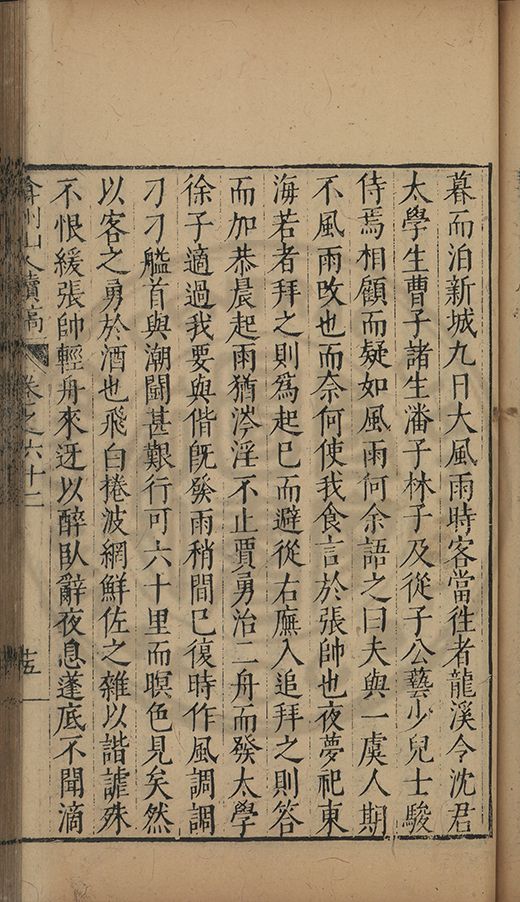 暮而泊新城九日大風雨時客當徃者龍溪令沈君
太學生曹子諸生潘子林子及從子公藝少兒士駿
侍焉相顧而疑如風雨何余語之曰夫與一虞人期
不風雨攺也而奈何使我食言於張帥也夜夢祀東
海若者拜之則爲起巳而避從右廡入追拜之則答
而加恭晨起雨猶涔淫不止賈勇治二舟而發太學
徐子適過我要與偕旣發雨稍間巳復時作風調調
刁刁艫首與潮鬬甚艱行可六十里而暝色見矣然
以客之勇於酒也飛白捲波網鮮佐之雜以諧謔殊
不恨緩張帥輕舟來迓以醉臥辭夜息蓬底不聞滴
弇州山人續稿 卷之六十二 十五